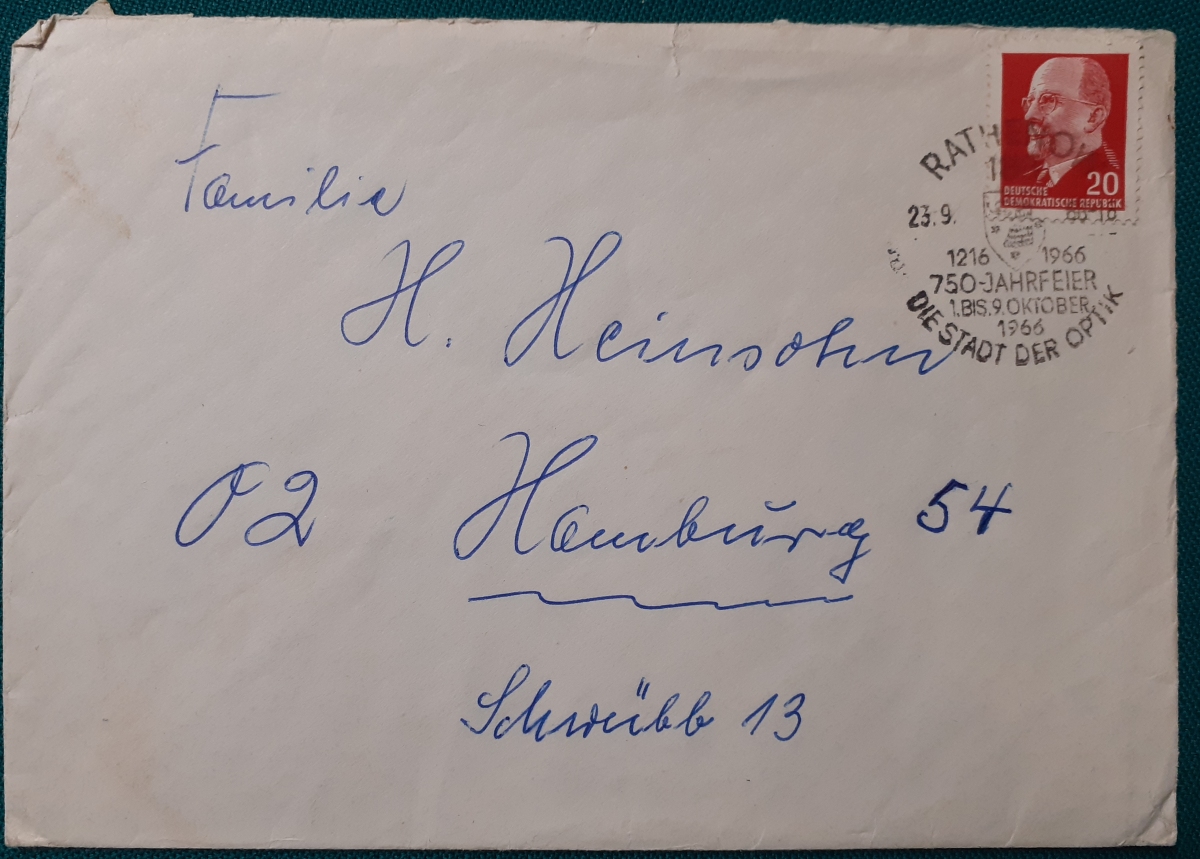 20
DEUTSCHE
DEMOKRATISCHE REPUBLIK
23.9.
1216 1966
750-JAHRFEIER
1.BIS.9.OKTOBER
1966
DIE STADT DER OPTIK
Familie
H. Heinsohn
02 Hamburg 54
Schwübb 13